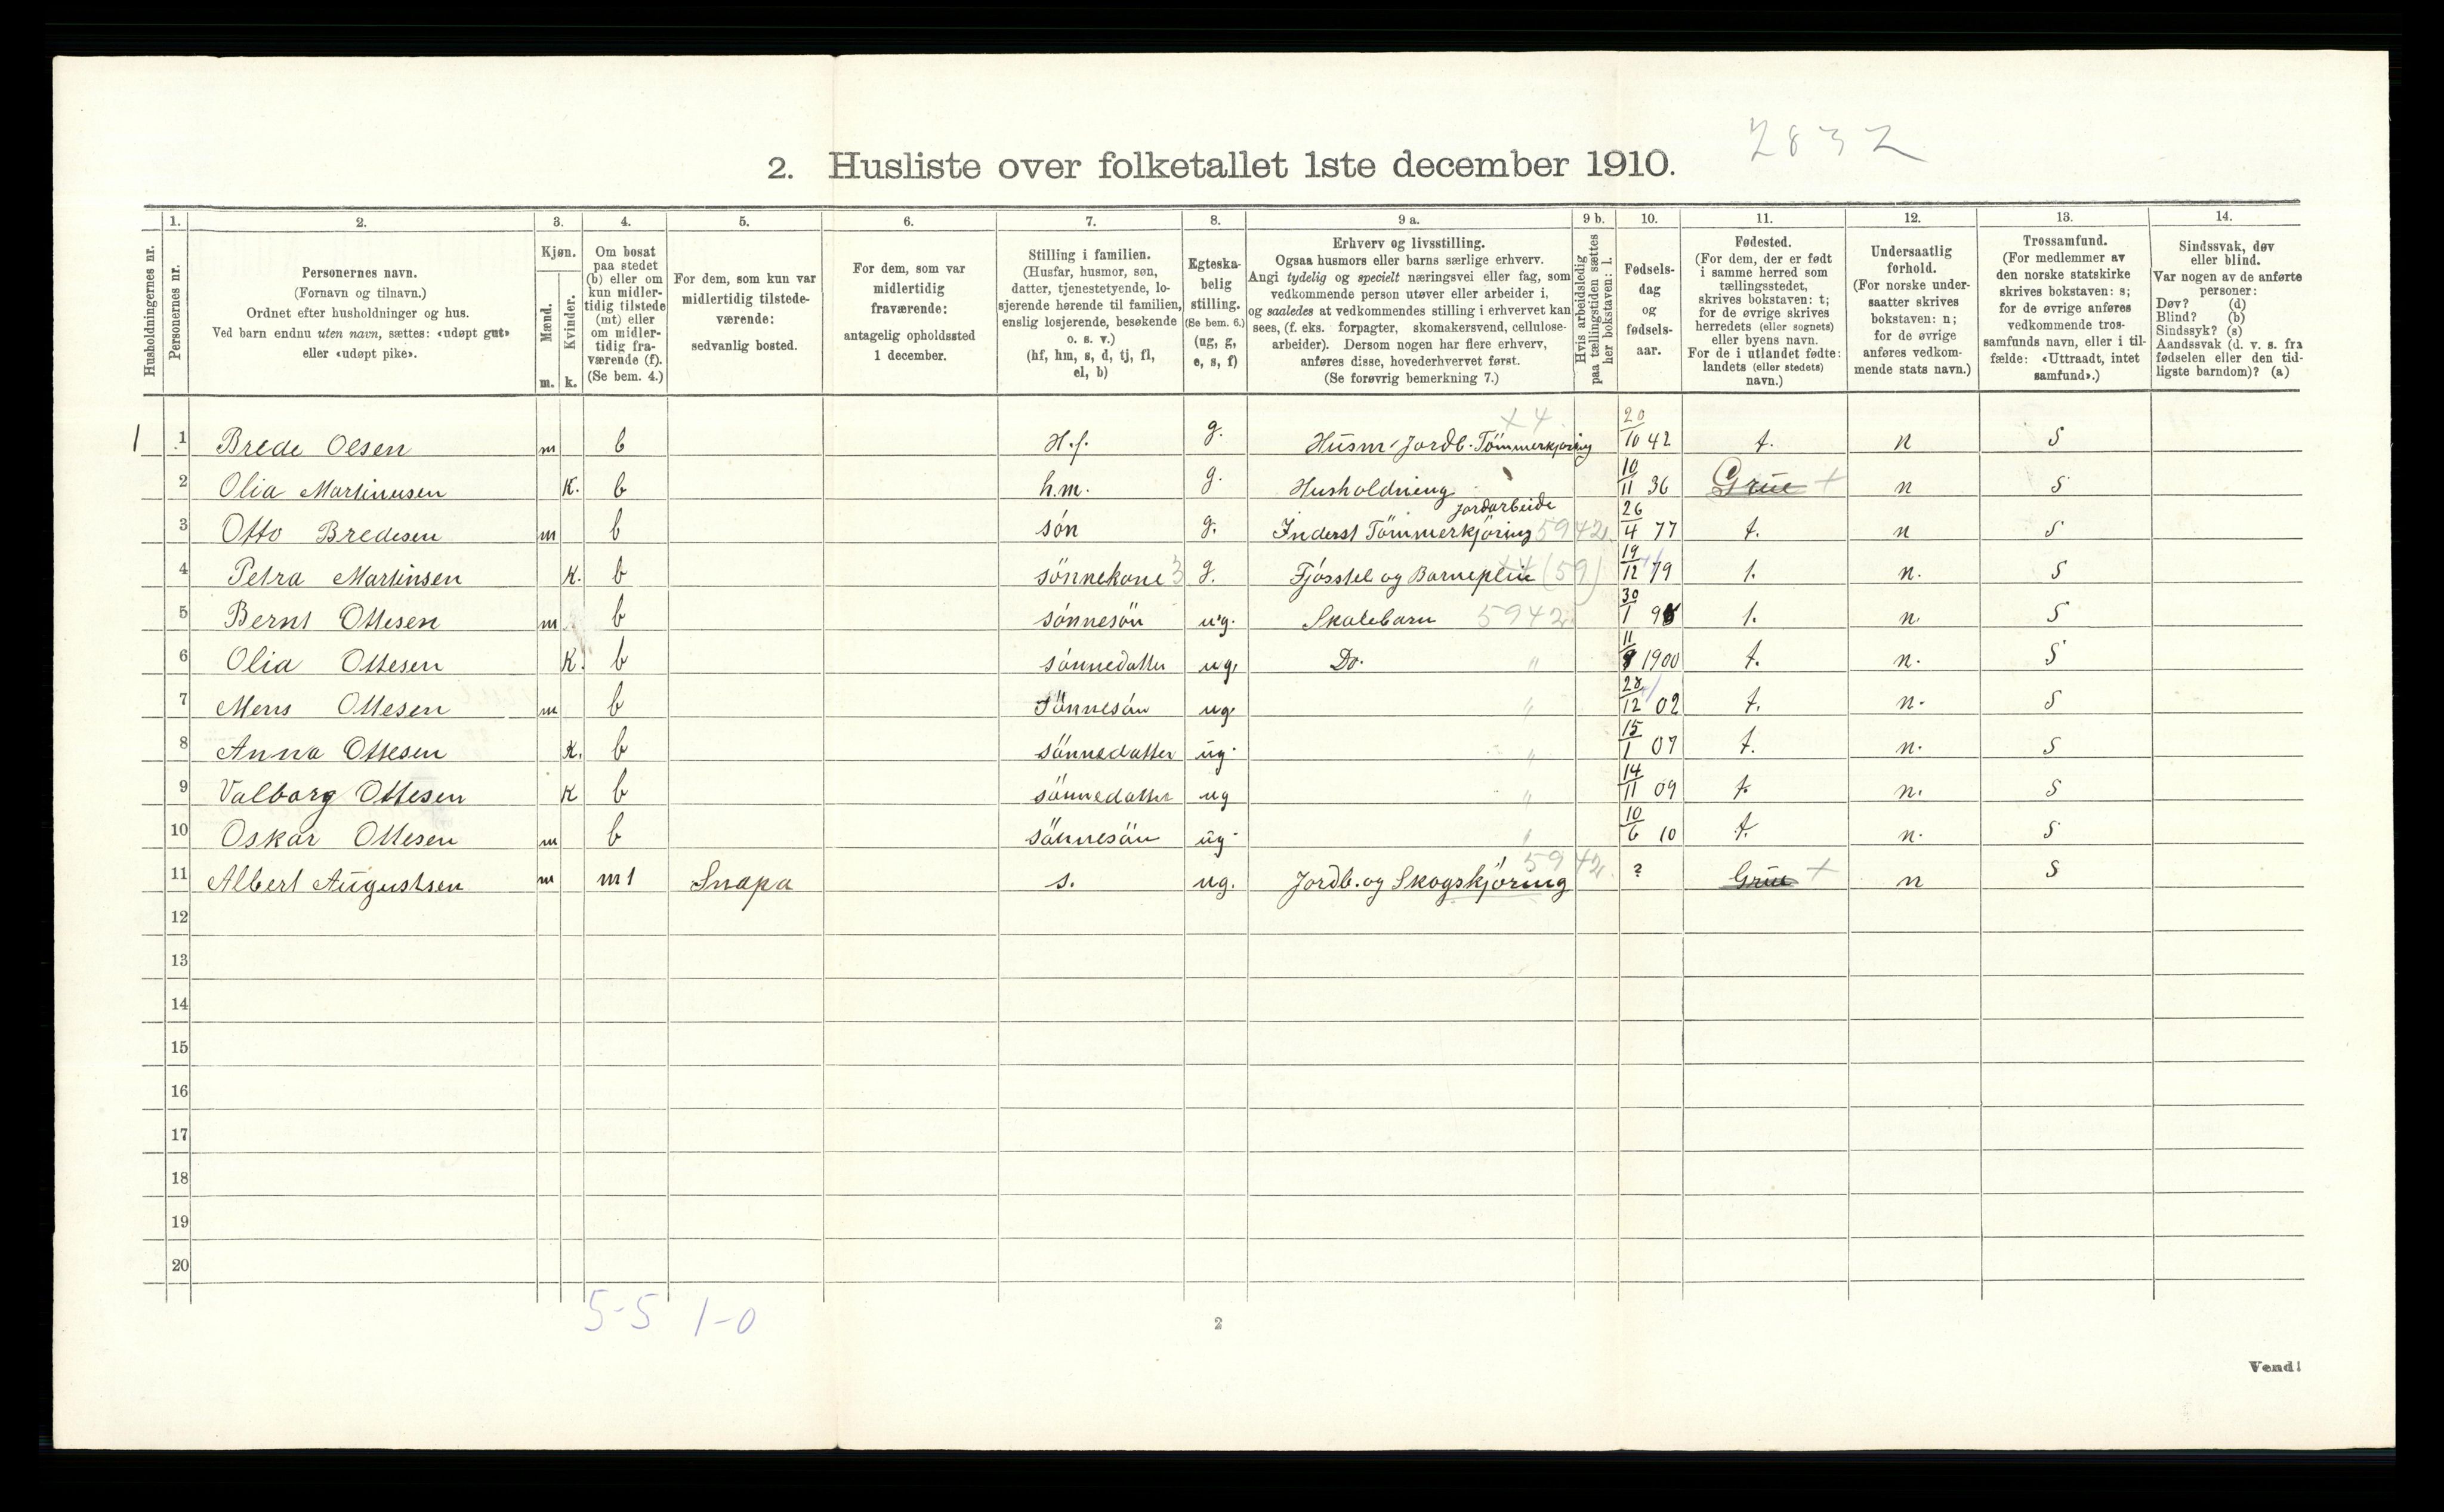 2832
2. Husliste over folketallet 1ste december 1910.
Husholdningernes nr.
1.
Personernes nr.
2.
Personernes navn.
(Fornavn og tilnavn.)
Ordnet efter husholdninger og hus.
Ved barn endnu uten navn, sættes: «udøpt gut»
eller «udøpt pike».
3.
Kjøn.
Mænd.
Kvinder.
m. k.
4.
Om bosat
paa stedet
(b) eller om
kun midler-
tidig tilstede
(mt) eller
om midler-
tidig fra-
værende (f).
(Se bem. 4.)
5.
For dem, som kun var
midlertidig tilstede-
værende:
sedvanlig bosted.
6.
For dem, som var
midlertidig
fraværende:
antagelig opholdssted
1 december.
7.
Stilling i familien.
(Husfar, husmor, søn,
datter, tjenestetyende, lo-
sjerende hørende til familien,
enslig losjerende, besøkende
o. s. v.)
(hf, hm, s, d, tj, fl,
el, b)
8.
Egteska-
belig
stilling.
(Se bem. 6.)
(ug, g,
e, s, f)
9 a.
Erhverv og livsstilling.
Ogsaa husmors eller barns særlige erhverv.
Angi tydelig og specielt næringsvei eller fag, som
vedkommende person utøver eller arbeider i,
og saaledes at vedkommendes stilling i erhvervet kan
sees, (f. eks. forpagter, skomakersvend, cellulose-
arbeider). Dersom nogen har flere erhverv,
anføres disse, hovederhvervet først.
(Se forøvrig bemerkning 7.)
9 b.
Hvis arbeidsledig
paa tællingstiden sættes
her bokstaven: l.
10.
Fødsels-
dag
og
fødsels-
aar.
11.
Fødested.
(For dem, der er født
i samme herred som
tællingsstedet,
skrives bokstaven: t;
for de øvrige skrives
herredets (eller sognets)
eller byens navn.
For de i utlandet fødte:
landets (eller stedets)
navn.)
12.
Undersaatlig
forhold.
(For norske under-
saatter skrives
bokstaven: n;
for de øvrige
anføres vedkom-
mende stats navn.)
13.
Trossamfund.
(For medlemmer av
den norske statskirke
skrives bokstaven: s;
for de øvrige anføres
vedkommende tros-
samfunds navn, eller i til-
fælde: «Uttraadt, intet
samfund».)
14.
Sindssvak, døv
eller blind.
Var nogen av de anførte
personer:
Døv? (d)
Blind? (b)
Sindssyk? (s)
Aandssvak (d. v. s. fra
fødselen eller den tid-
ligste barndom)? (a)
x4
1 1 Brede Olsen m b H.f. g. Husm. Jordb. Tömmerkjöring 20/10 42 t. n s
2 Olia Martinusen K. b h.m. g. Husholdning 10/11 36 Grue + n s
jordarbeide
3 Otto Bredesen m b sön g. Inderst Tömmerkjöring 5942 26/4 77 t. n s
4 Petra Martinsen K. b sönnekone 3 g. Fjösstel og Barnepleie (59) 19/12 79 t. n. s
5 Bernt Ottesen m b sönnesön ug. Skolebarn 5942 30/1 t. n. s
6 Olia Ottesen K. b sönnedatter ug. Do. " 1900 t. n. s
7 Mens Ottesen m b sönnesön ug. " 28/12 02 t. n. s
8 Anna Ottesen K. b sönnedatter ug. " 15/1 07 t. n. s
9 Valborg Ottesen K b sönnedatter ug " 14/11 09 t. n. s
10 Oskar Ottesen m b sönnesön ug. " 10/6 10 t. n. s
11 Albert Augustsen m mt Snapa s. ug. Jordb. og Skogskjöring 5942 ? Grue + n s
12
13
14
15
16
17
18
19
20
5-5 1-0
2
Vend!